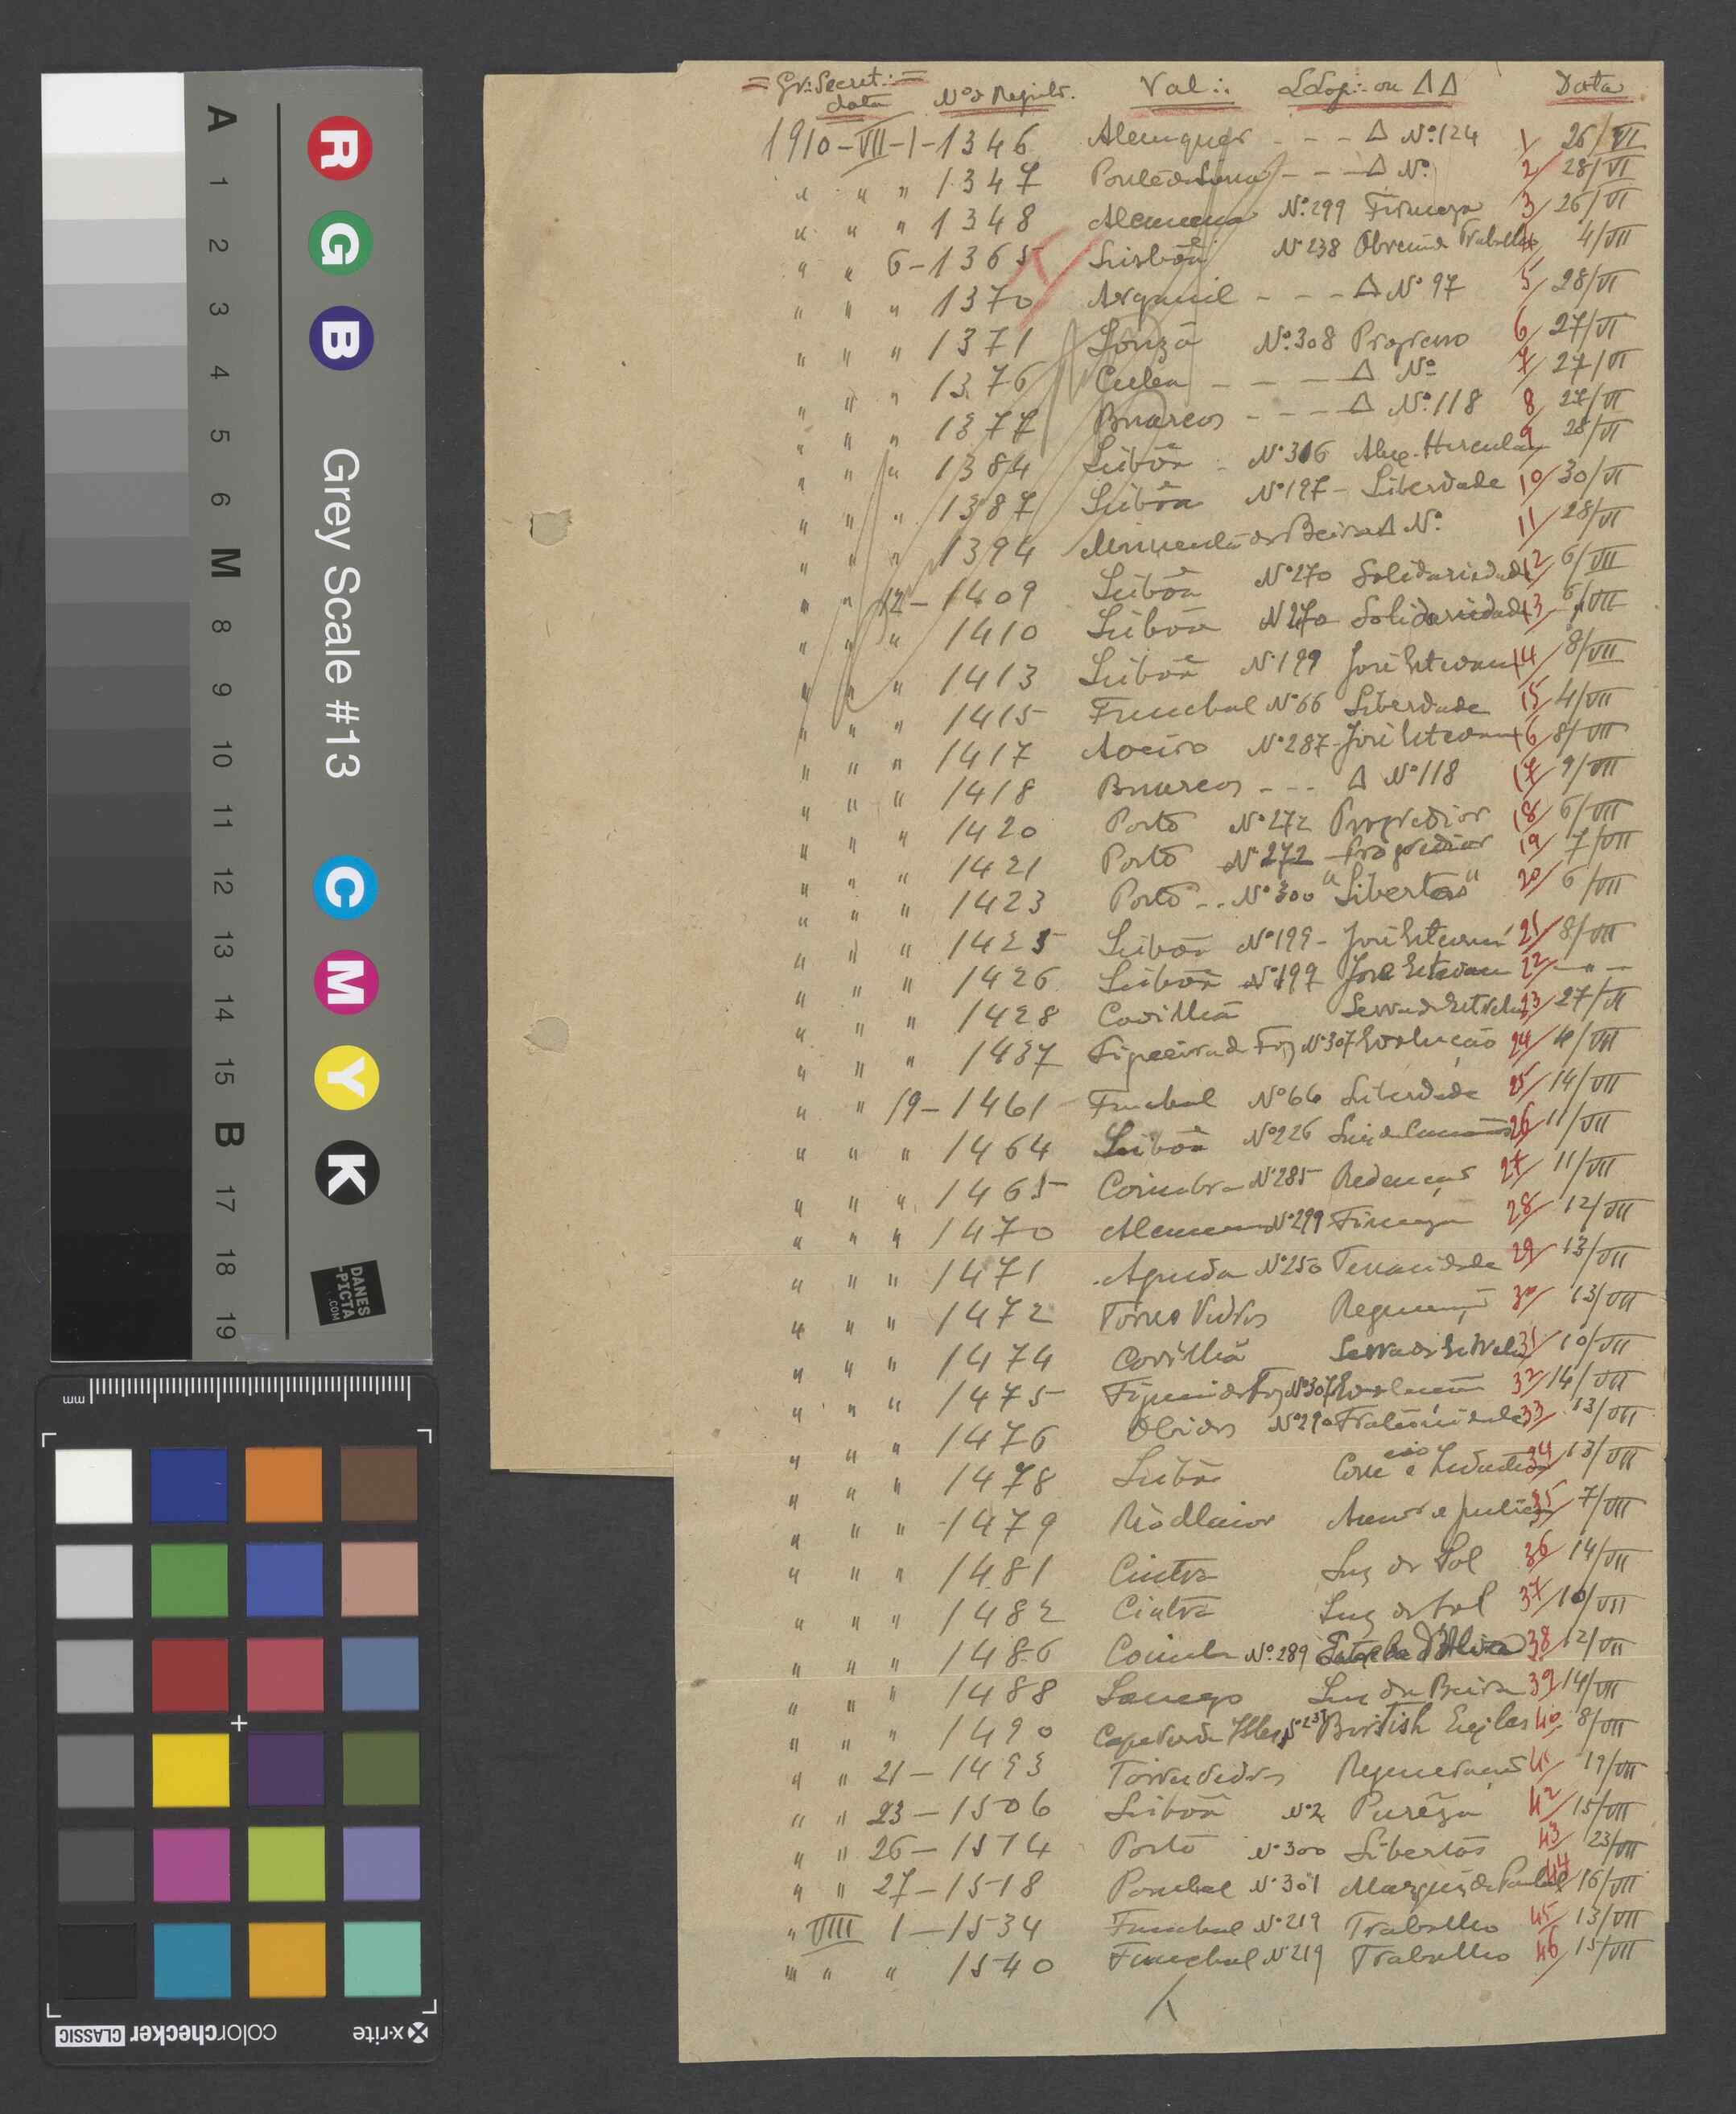 = Gr∴ Secret∴ = Nº de Regist. Val∴ LLoj∴ ou ΔΔ Data
data
1910-VII-1-1346 Alemquer - - - Δ Nº 124 1/ 26/VI
" " " 1347 - - - Δ Nº 2/ 28/VI
" " " 1348 Nº 299 Firmeza 3/ 26/VI
" " 6-1365 Lisbôa Nº 238 Trabalho 4/VII
" " " 1370 Arganil - - - Δ Nº 97 5/ 28/VI
" " " 1371 Louzã Nº 308 Progresso 6/ 27/VI
" " " 1376 - - - Δ Nº 7/ 27/VI
" " " 1377 Buarcos - - - Δ Nº 118 8 27/VI
" " " 1384 Lisbôa - Nº 316 Alex. Herculano 9 28/VI
" " " 1387 Lisbôa Nº 197 - Liberdade 10/ 30/VI
" " " 1394 Moimenta da Beira Δ Nº 11/ 28/VI
" " 12-1409 Lisbôa Nº 270 Solidariedade 12/ 6/VII
" " " 1410 Lisbôa Nº 270 Solidariedade 13 6/VII
" " " 1413 Lisbôa Nº 199 José Estevam 14/ 8/VII
" " " 1415 Funchal Nº 66 Liberdade 15/ 4/VII
" " " 1417 Aveiro Nº 287 - José Estevam 16/ 8/VII
" " " 1418 Buarcos - - - Δ Nº 118 17/ 9/VII
" " " 1420 Porto Nº 272 Progredior 18/ 6/VII
" " " 1421 Porto Nº 272 Progredior 19/ 7/VII
" " " 1423 Porto - - Nº 300 "Libertas" 20/ 6/VII
" " " 1425 Lisbôa Nº 199 - José Estevam 21/ 8/VII
" " " 1426 Lisbôa Nº 199 José Estevam 22/ - " -
" " " 1428 Covilhã Serra da Estrela 23/ 27/VI
" " " 1437 Figueira da Foz Nº 307 Evolução 24/ /VII
" " 19-1461 Funchal Nº 66 Liberdade 25/ 14/VII
" " " 1464 Lisbôa Nº 226 Luiz de Camões 26/ 11/VII
" " " 1465 Coimbra - Nº 285 Redenção 27/ 11/VII
" " " 1470 Nº 299 Firmeza 28/ 12/VII
" " " 1471 Agueda Nº 250 Tenacidade 29/ 13/VII
" " " 1472 Torres Vedras 30/ 13/VII
" " " 1474 Covilhã Serra da Estrela 31/ 10/VII
" " " 1475 Figueira da Foz Nº 307 Evolução 32/ 14/VII
" " " 1476 Obidos Nº 290 Fraternidade 33 13/VII
" " " 1478 Lisbôa Comercio e Industria 34 13/VII
" " " 1479 Rio Maior Amor e Justiça 35/ 7/VII
" " " 1481 Cintra Luz do Sol 36/ 14/VII
" " " 1482 Cintra Luz do Sol 37/ 10/VII
" " " 1486 Coimbra Nº 289 Estrela d'Alva 38 12/VII
" " " 1488 Lamego Luz da Beira 39 14/VII
" " " 1490 Cape Verde Isles Nº 237 British 40 8/VII
" " 21-1493 Torres Vedras Regeneração 41 19/VII
" " 23-1506 Lisbôa Nº 2 Purêza 42 15/VII
" " 26-1514 Porto Nº 300 Libertas 43 23/VII
" " 27-1518 Pombal Nº 301 Marquez de Pombal 44 16/VII
" VIII 1-1534 Funchal Nº 219 Trabalho 45 13/VII
" " " 1540 Funchal Nº 219 Trabalho 46 15/VII
A 1 2 3 4 5 6 M 8 9 10 11 12 13 14 15 B 17 18 19
R G B Grey Scale #13 C M Y K
DANES
-PICTA
.COM
mm
x·rite colorchecker CLASSIC